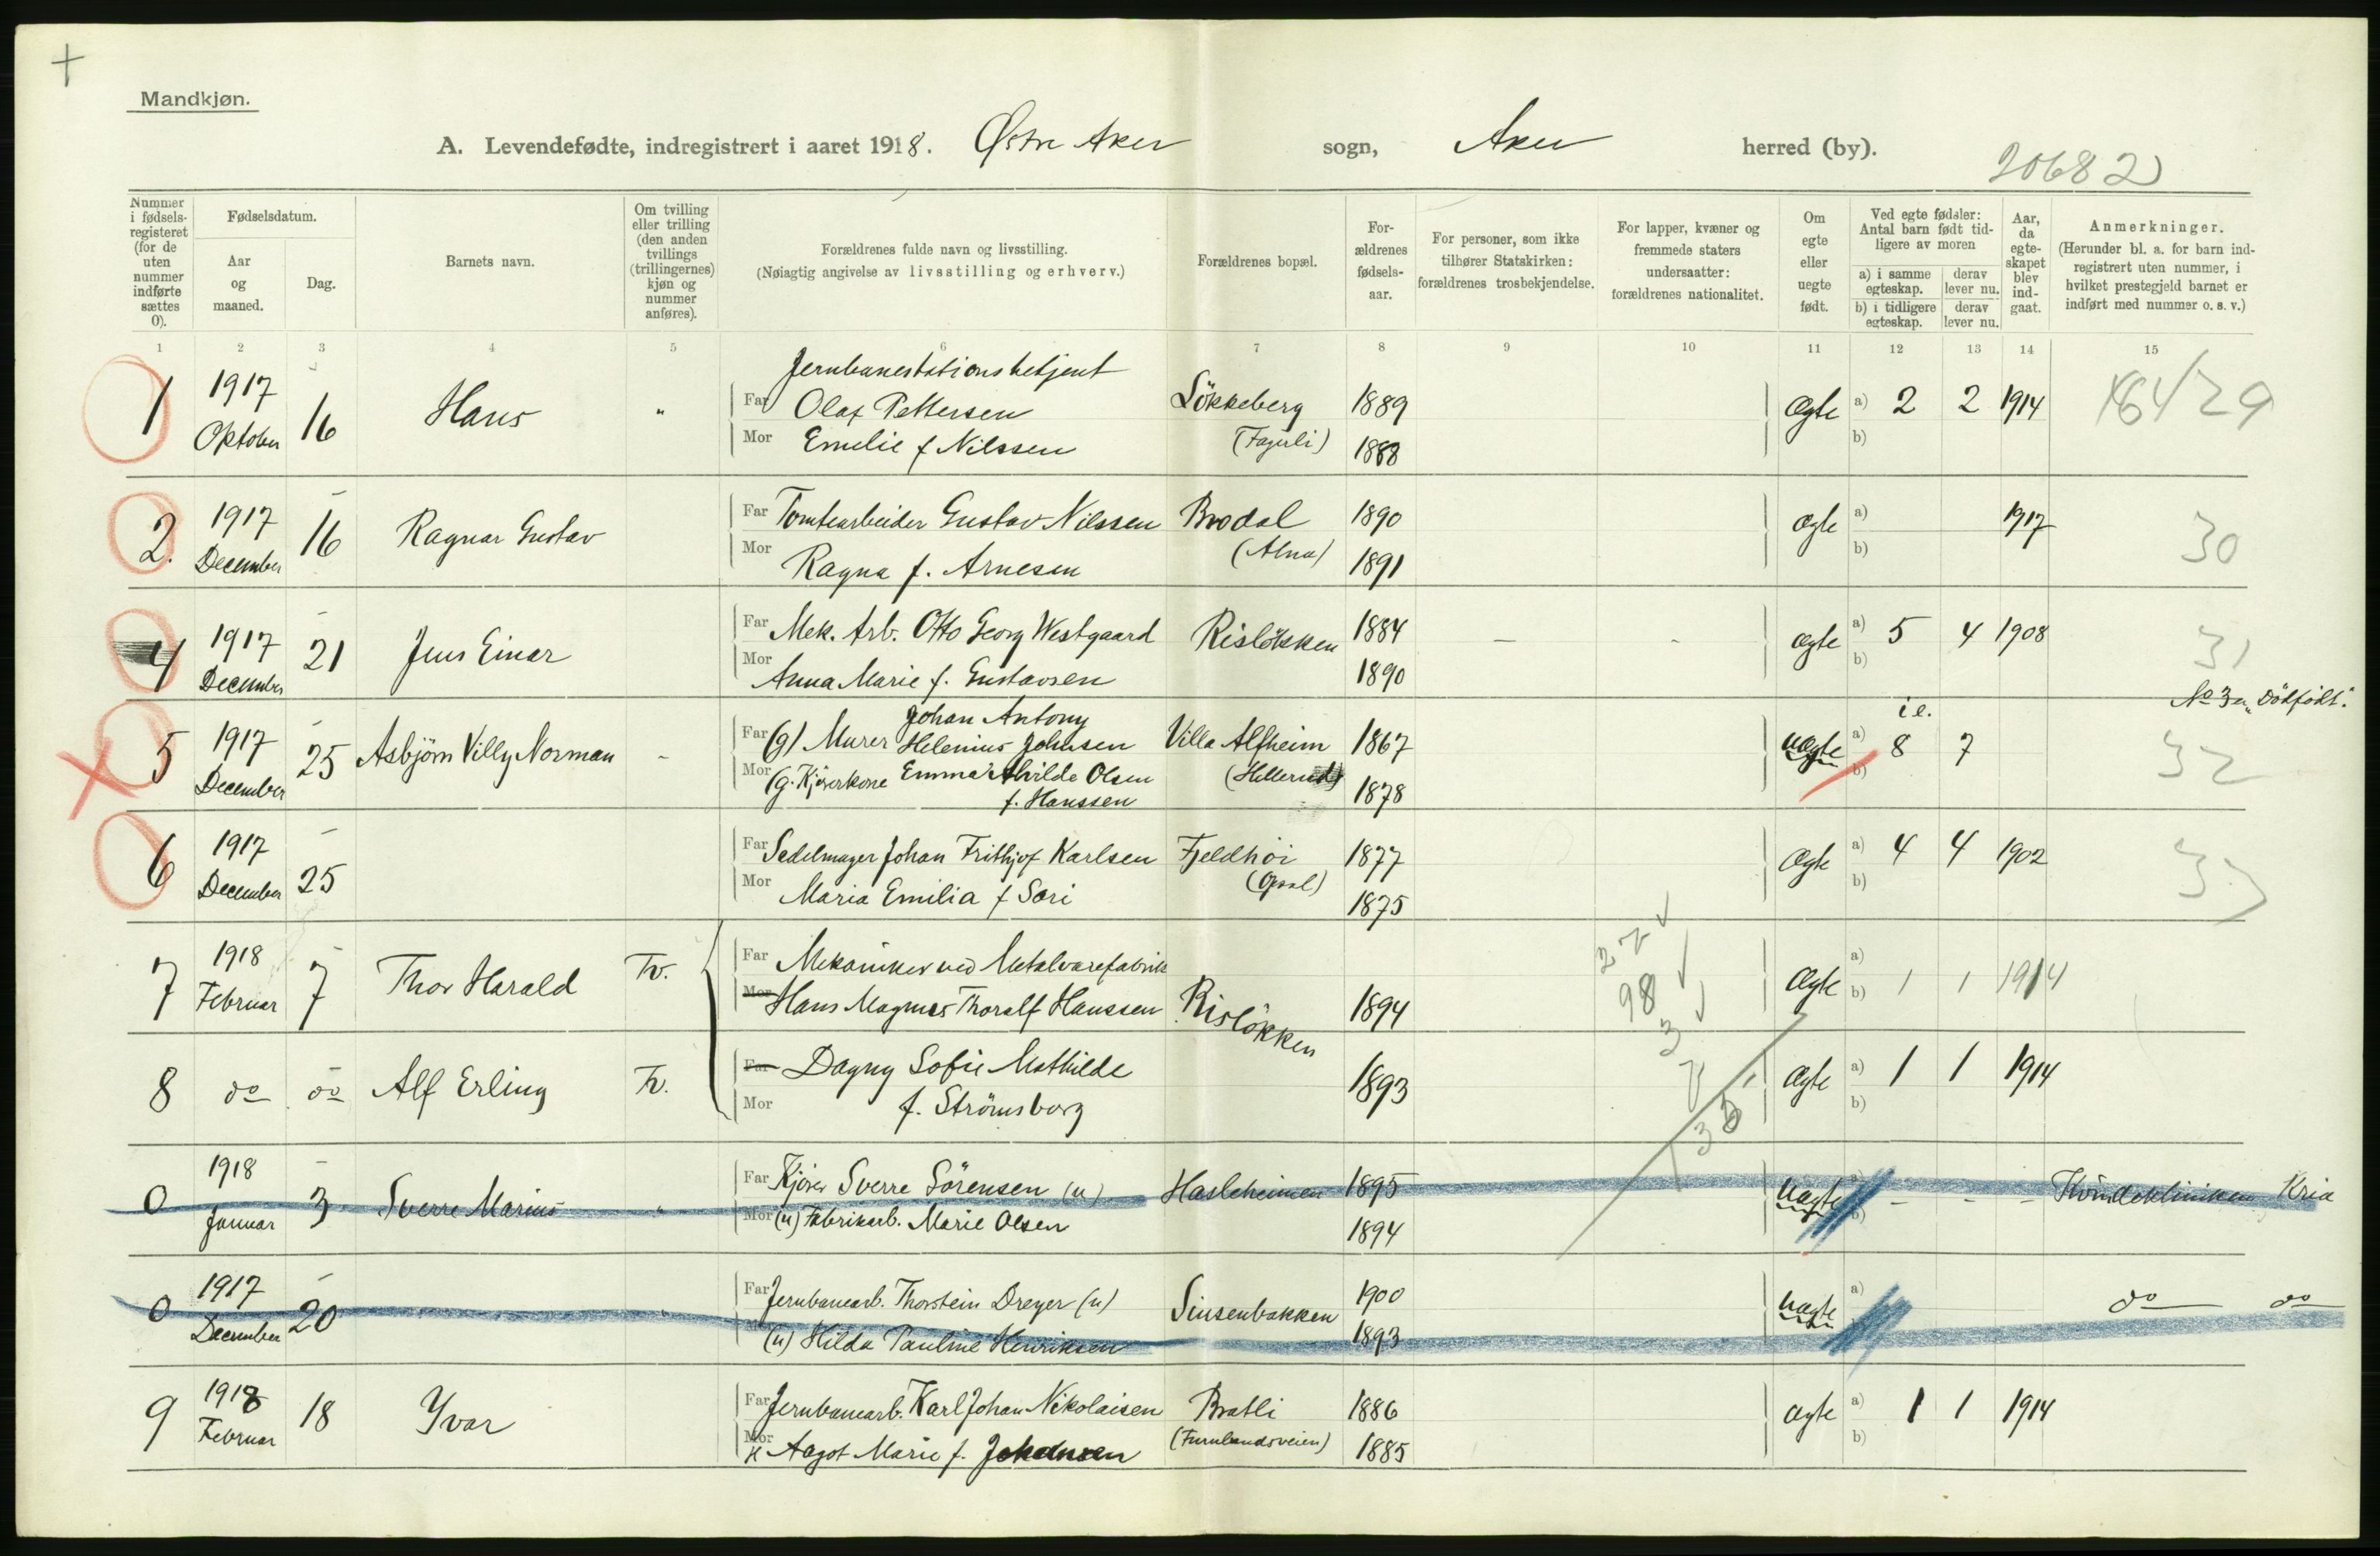 Mandkjøn.
A. Levendefødte, indregistrert i aaret 1918. Østre Aker sogn, Aker herred (by).
20682
Nummer i fødsels-registeret (for de uten nummer indførte sættes 0).
Fødselsdatum.
Aar og maaned.
Dag.
Barnets navn.
Om tvilling eller trilling (den anden tvillings (trillingernes) kjøn og nummer anføres).
Forældrenes fulde navn og livsstilling.
(Nøiagtig angivelse av livsstilling og erhverv.)
Forældrenes bopæl.
For-ældrenes fødsels-aar.
For personer, som ikke tilhører Statskirken: forældrenes trosbekjendelse.
For lapper, kvæner og fremmede staters undersaatter: forældrenes nationalitet.
Om egte eller uegte født.
Ved egte fødsler: Antal barn født tid-ligere av moren
a) i samme egteskap.
derav lever nu.
b) i tidligere egteskap.
derav lever nu.
Aar, da egte-skapet blev ind-gaat.
Anmerkninger.
(Herunder bl. a. for barn ind-registrert uten nummer, i hvilket prestegjeld barnet er indført med nummer o. s. v.)
1 2 3 4 5 6 7 8 9 10 11 12 13 14 15
Jernbanestationsbetjent
1 1917 Oktober 16 Hans " Far Olaf Pettersen Løkkeberg 1889 Ægte a) 2 2 1914
Mor Emelie f Nilssen (Fagerli) 1888 b)
2. 1917 December 16 Ragnar Gustav Far Tomtearbeider Gustav Nilssen Brodal 1890 Ægte a) 1917 30
Mor Ragna f. Arnesen (Alna) 1891 b)
4 1917 December 21 Jens Einar Far Mek. Arb. Otto Georg Westgaard Risløkken 1884 – - Ægte a) 5 4 1908 31
Mor Anna Marie f. Gustavsen 1890 b)
No 3 er "Dödfödt".
Johan Antony i e.
5 1917 December 25 Asbjörn Villy Norman - Far (g) Murer Helenius Johnsen Villa Alfheim 1867 Uægte a) 8 7 32
Mor (g. Kjörerkone Emma Alvilde Olsen (Hellerud) 1878 b)
f. Hanssen
6 1917 December 25 Far Sedelmager Johan Frithjof Karlsen Fjeldhöi 1877 Ægte a) 4 4 1902 33
Mor Maria Emilia f Sari (Opsal) 1875 b)
7 1918 Februar 7 Thor Harald Tv. Far Mekaniker ved Metalvarefabrik Ægte a)
Mor Hans Magnus Thoralf Hanssen Risløkken 1894 b) 1 1 1914
8 do do Alf Erling Tv. Far Dagny Sofie Mathilde 1893 Ægte a) 1 1 1914
Mor f. Strömsborg b)
0 1918 Januar 3 Sverre Marius " Far Kjörer Sverre Sörensen (u) Hasleheimen 1895 Uægte a) - - - Kvindeklinikken Kria
Mor (u) Fabrikarb. Marie Olsen 1894 b)
0 1917 December 20 " " Far Jernbanearb. Thorstein Dreyer (u) Sinsenbakken 1900 Uægte a) do do
(u) Hilda Pauline Henriksen 1893
9 1918 Februar 18 Yvar Far Jernbanearb. Karl Johan Nikolaisen Bratli 1886 Ægte a) 1 1 1914
Mor H Aagot Marie f. Johansen (Furulundsveien) 1885 b)